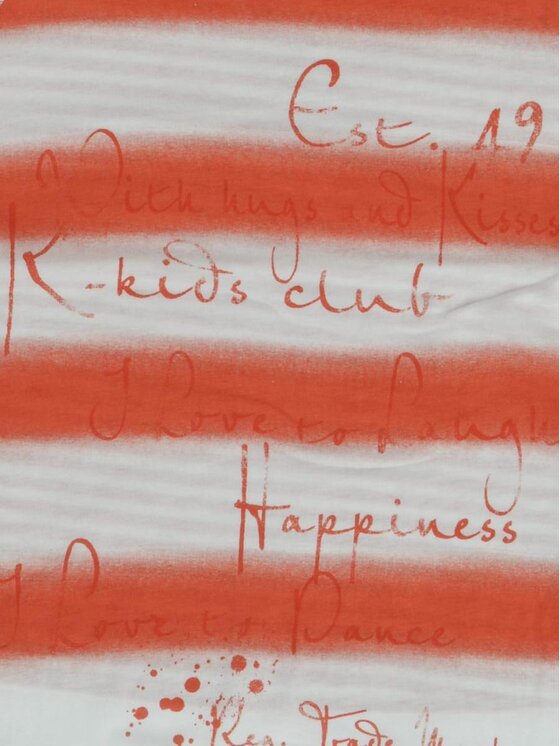 Est. 19
With hugs and Kisses
K-kids club
I Love to Laugh
Happiness
I Love to Dance
Reg. Trade Mark